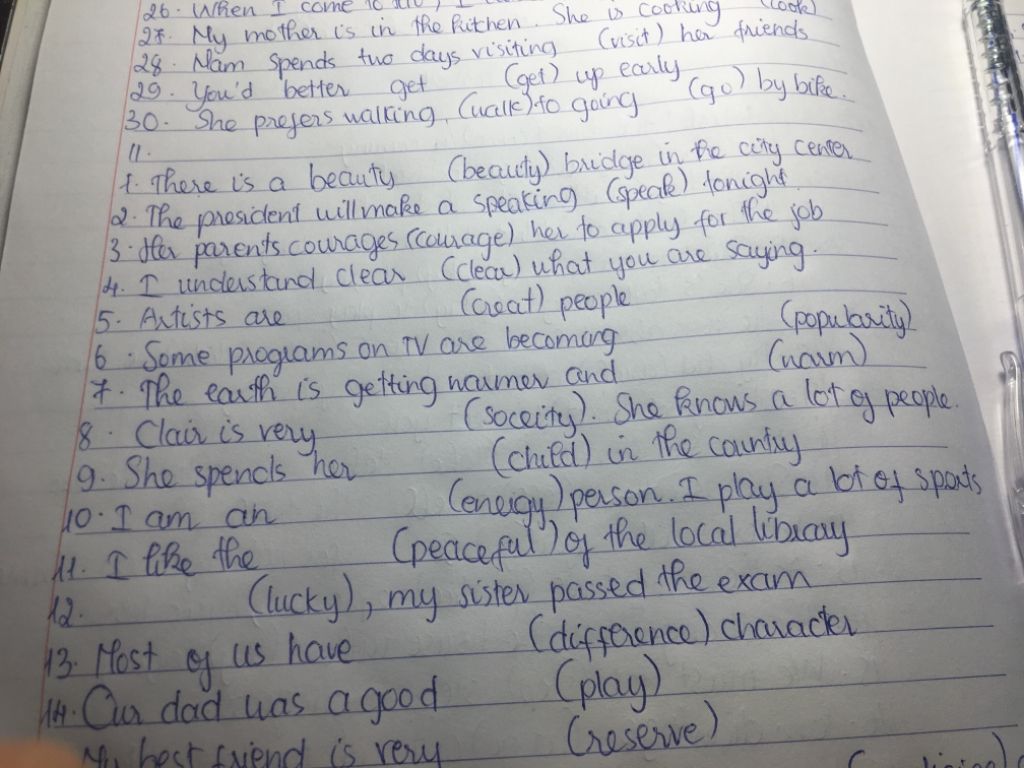 26. When I come
27. My mother is in the kitchen. She is cooking (cook)
28. Nam spends two days visiting (visit) her friends
29. You'd better get (get) up early
30. She prefers walking (walk) to going (go) by bike.
11.
1. There is a beauty (beauty) bridge in the city center
2. The president will make a speaking (speak) tonight
3. Her parents courages (courage) her to apply for the job
4. I understand clear (clear) what you are saying.
5. Artists are (creat) people
6. Some programs on TV are becoming (popularity)
7. The earth is getting warmer and (warm)
8. Clair is very (soceity). She knows a lot of people.
9. She spends her (child) in the country
10. I am an (energy) person. I play a lot of sports
11. I like the (peaceful) of the local library
12. (lucky), my sister passed the exam
13. Most of us have (difference) character
14. Our dad was a good (play)
My best friend is very (reserve)